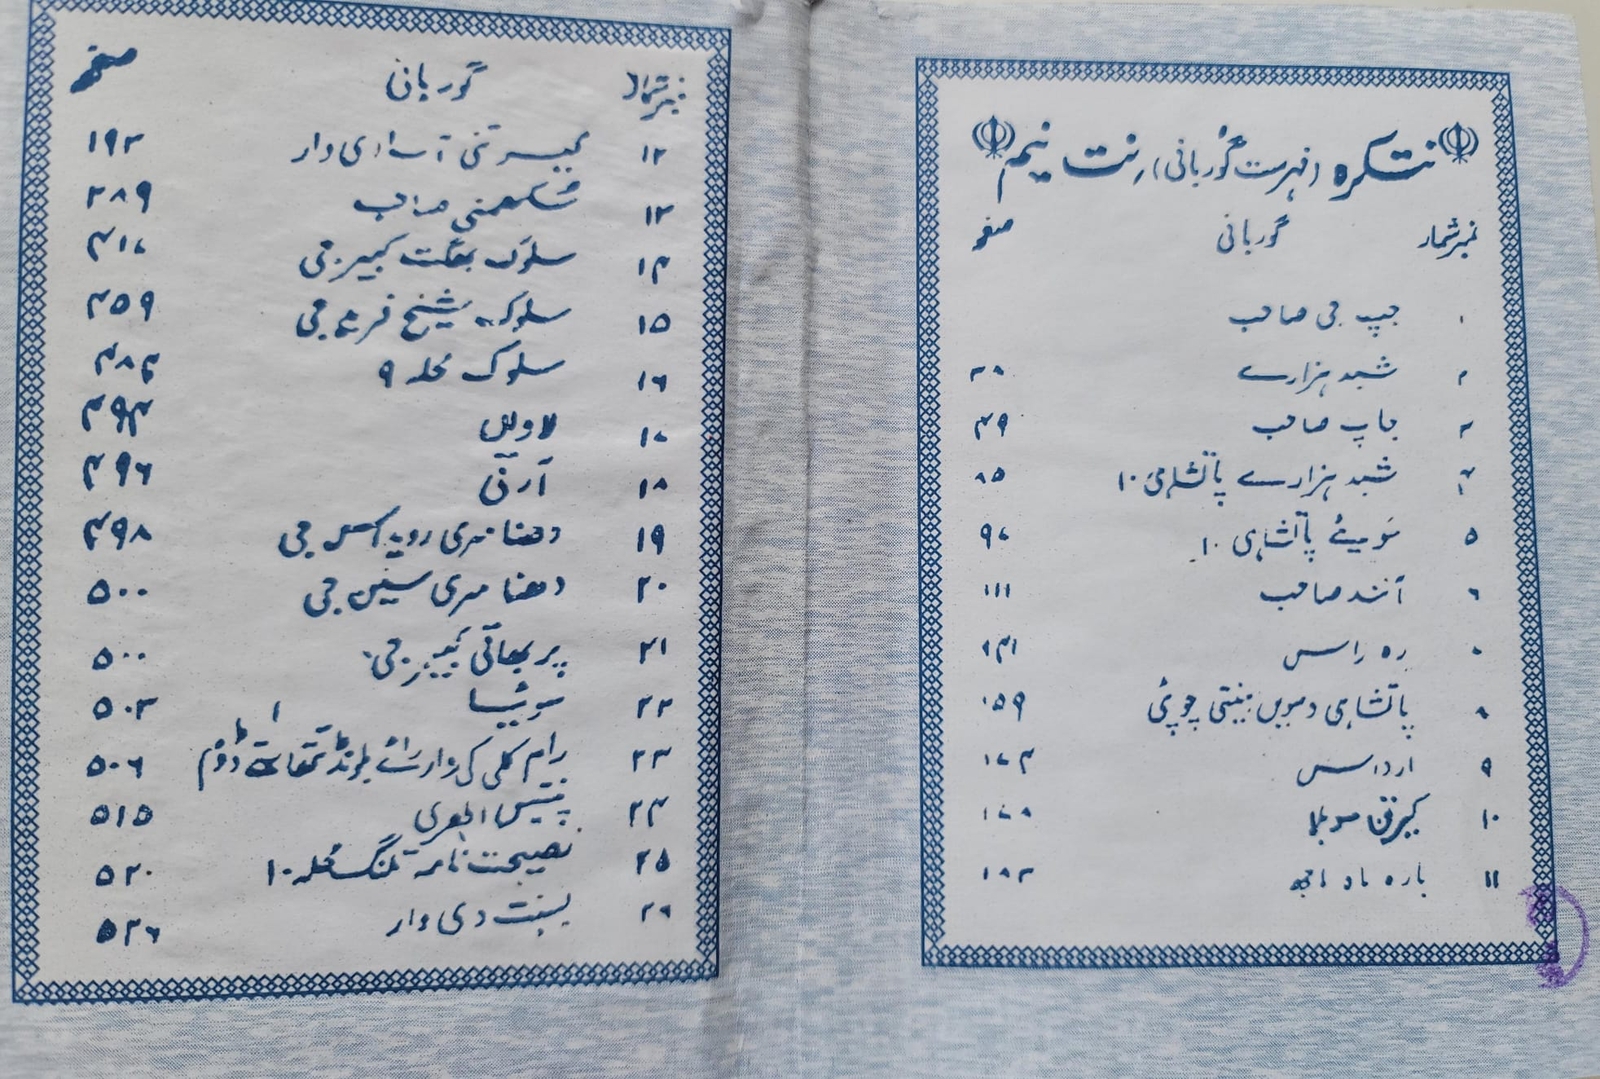 نتکرہ (فہرست گوربانی) نت نیم
نمبرشمار گوربانی صفحہ
۱ جپ جی صاحب
۲ شبد ہزارے ۳۸
۳ جاپ صاحب ۴۹
۴ شبد ہزارے پاتشاہی ۱۰ ۸۵
۵ سَوَیئے پاتشاہی ۱۰ ۹۷
۶ آنند صاحب ۱۱۱
۷ رہ راس ۱۴۱
۸ پاتشاہی دسویں بینتی چوپئی ۱۵۹
۹ ارداس ۱۷۴
۱۰ کیرتن سوہلا ۱۷۸
۱۱ بارہ ماہ ماجھ ۱۸۳
نمبرشمار گوربانی صفحہ
۱۲ آسا دی وار ۱۹۳
۱۳ سُکھمنی صاحب ۲۸۹
۱۴ سلوک بھگت کبیر جی ۴۱۷
۱۵ سلوک شیخ فرید جی ۴۵۹
۱۶ سلوک محلہ ۹ ۴۸۴
۱۷ لاویں ۴۹۴
۱۸ آرتی ۴۹۶
۱۹ دھناسری رویداس جی ۴۹۸
۲۰ دھناسری سین جی ۵۰۰
۲۱ پربھاتی کبیر جی ۵۰۰
۲۲ ۵۰۳
۲۳ رام کلی کی وار رائے بلونڈ تتھا ستے ڈوم ۵۰۶
۲۴ پینتیس اکھری ۵۱۵
۲۵ نصیحت نامہ تلنگ محلہ ۱۰ ۵۲۰
۲۶ بسنت دی وار ۵۲۶